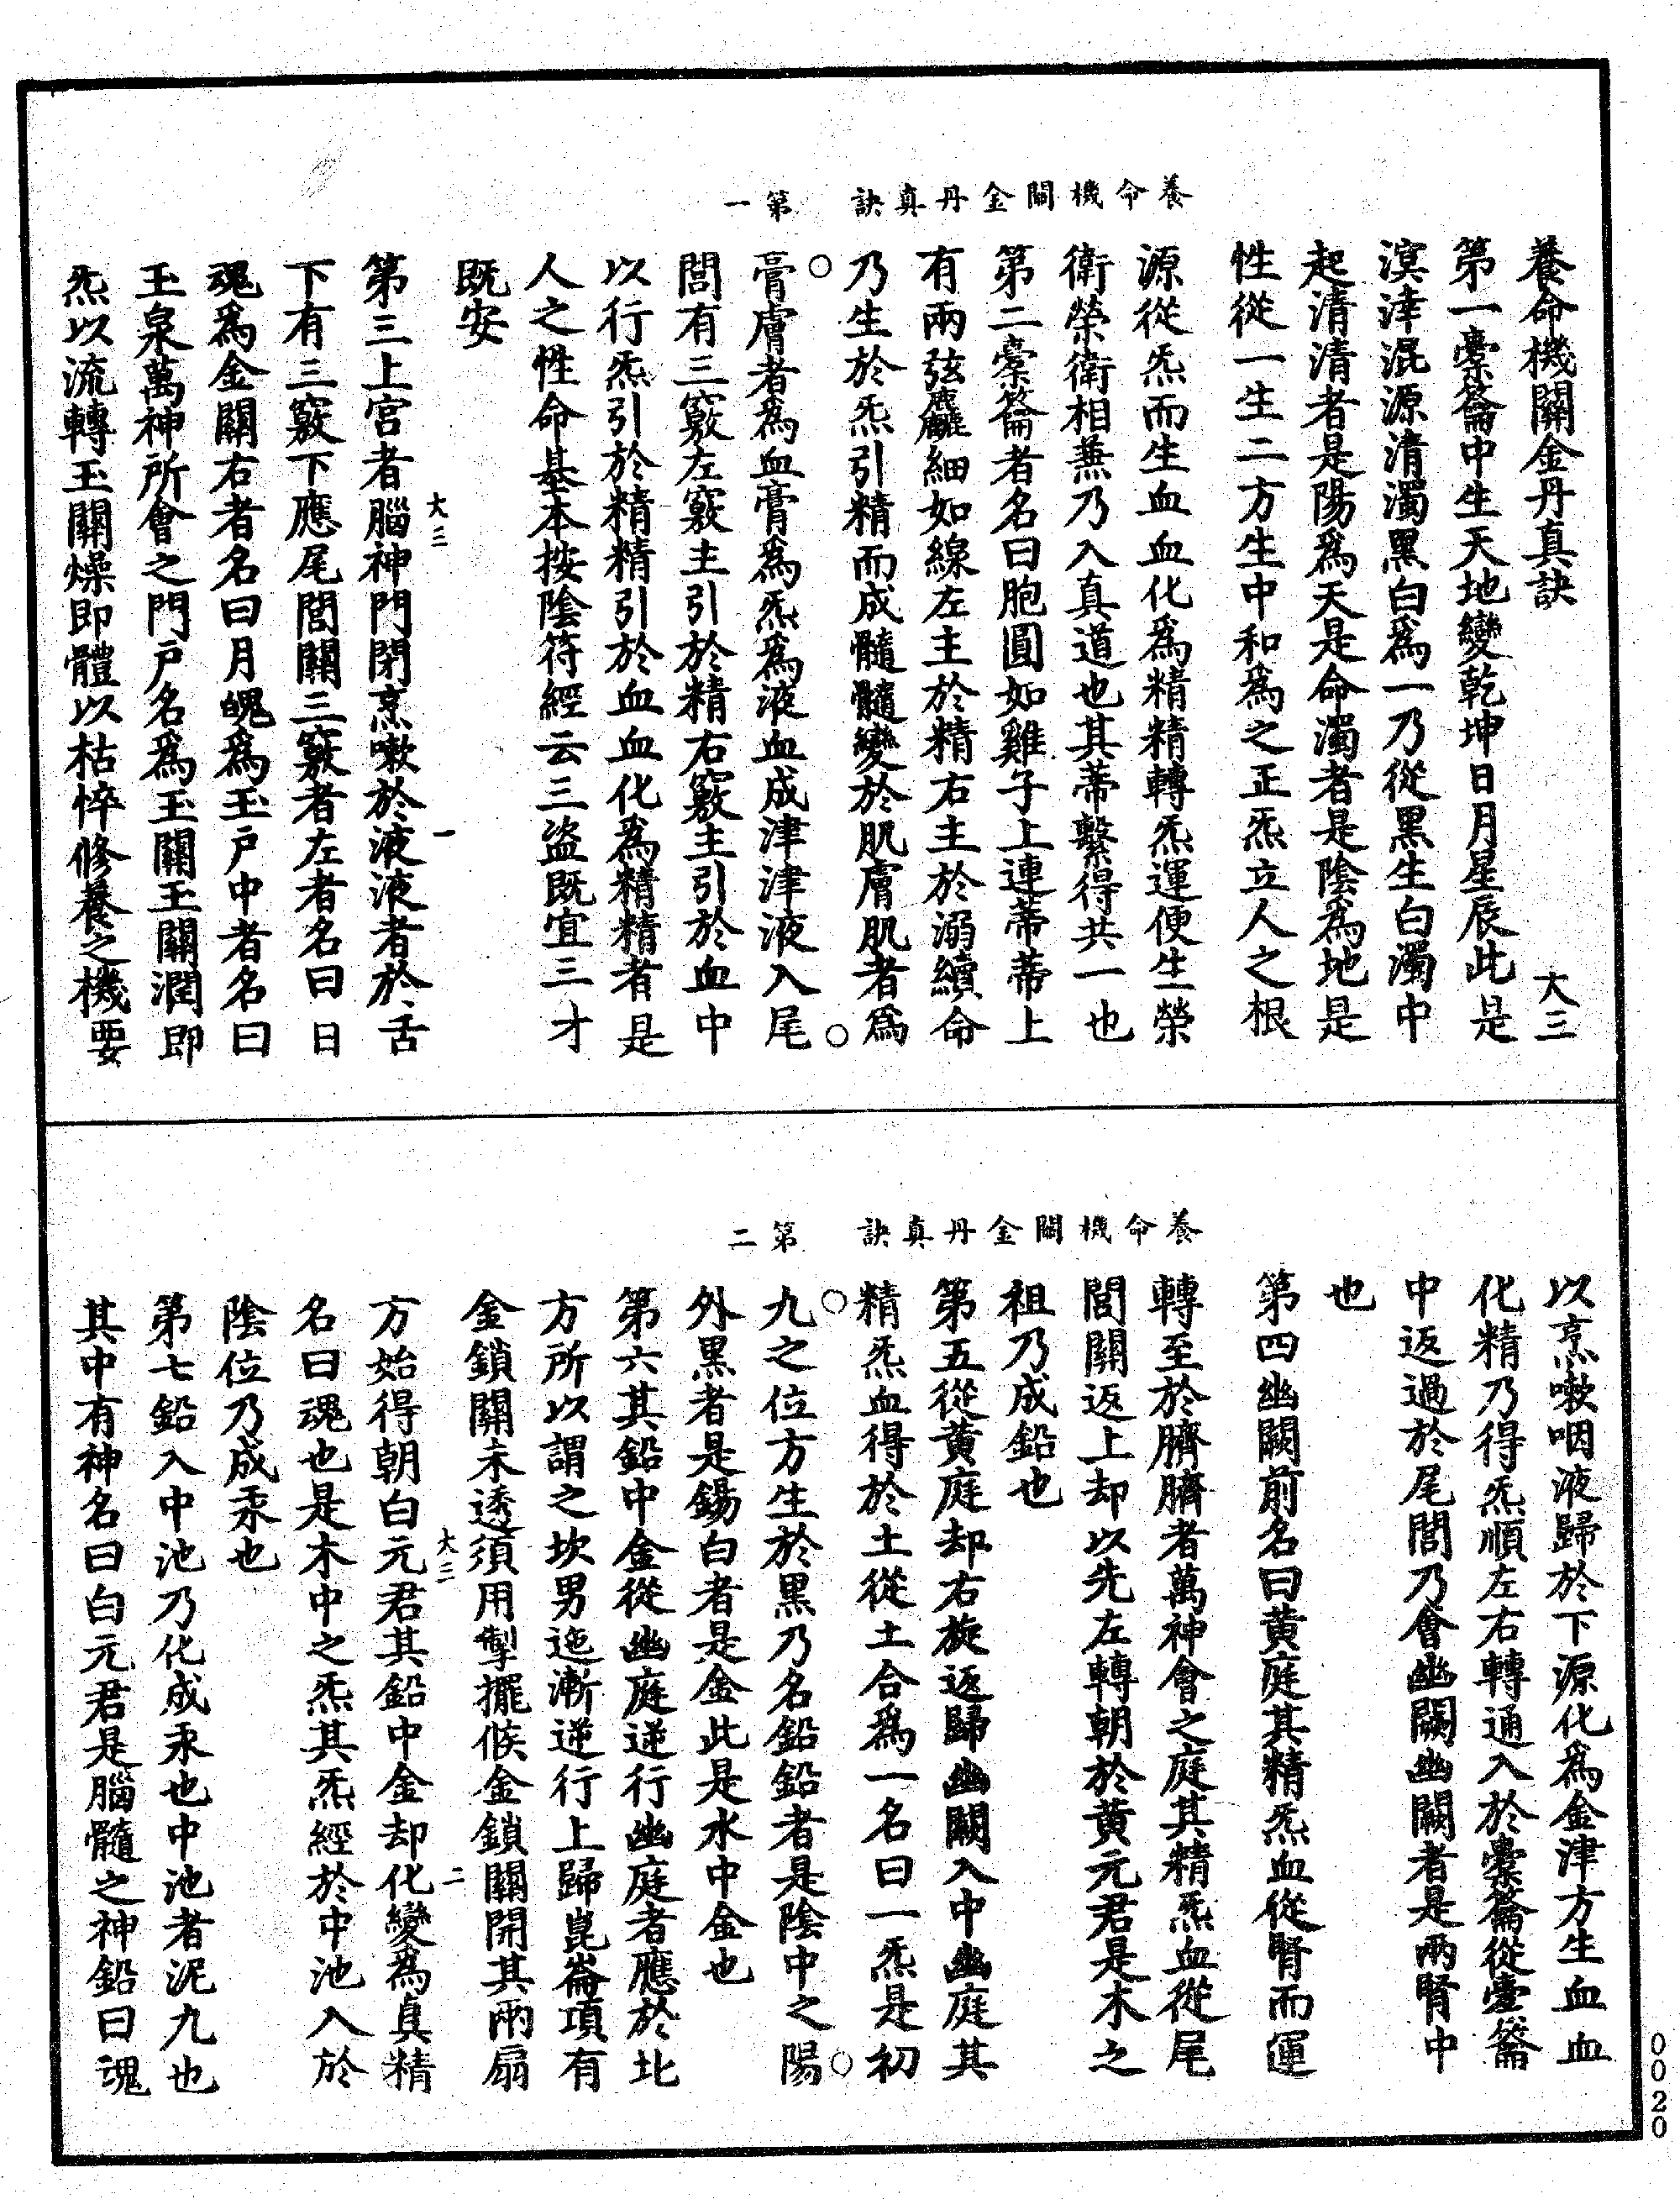 養命機關金丹真訣 大三
第一橐籥中生天地變乾坤日月星辰此是
溟涬混源清濁黑白爲一乃從黑生白濁中
起清清者是陽爲天是命濁者是陰爲地是
性從一生二方生中和爲之正炁立人之根
源從炁而生血血化爲精精轉炁運便生榮
衛榮衛相兼乃入真道也其蒂繫得共一也
第二橐籥者名曰胞圓如雞子上連蒂蒂上
有兩弦麤細如線左主於精右主於溺續命
乃生於炁引精而成髓髓變於肌膚肌者爲
膏膚者爲血膏爲炁爲液血成津津液入尾
閭有三竅左竅主引於精右竅主引於血中
以行炁引於精精引於血血化爲精精者是
人之性命基本按陰符經云三盜既宜三才
既安
第三上宫者腦神門閉烹嗽於液液者於舌
下有三竅下應尾閭關三竅者左者名曰日
魂爲金關右者名曰月魄爲玉户中者名曰
玉泉萬神所會之門户名爲玉關玉關潤即
炁以流轉玉關燥即體以枯悴修養之機要
養命機關金丹真訣 第一
大三 一
以烹嗽咽液歸於下源化爲金津方生血血
化精乃得炁順左右轉通入於橐籥從橐籥
中返過於尾閭乃會幽闕幽闕者是兩腎中
也
第四幽闕前名曰黄庭其精炁血從腎而運
轉至於臍臍者萬神會之庭其精炁血從尾
閭關返上却以先左轉朝於黄元君是木之
祖乃成鉛也
第五從黄庭却右旋返歸幽闕入中幽庭其
精炁血得於土從土合爲一名曰一炁是初
九之位方生於黑乃名鉛鉛者是陰中之陽
外黑者是錫白者是金此是水中金也
第六其鉛中金從幽庭逆行幽庭者應於北
方所以謂之坎男迤漸逆行上歸崑崙項有
金鎖關未透須用掣擺候金鎖關開其兩扇
方始得朝白元君其鉛中金却化變爲真精
名曰魂也是木中之炁其炁經於中池入於
陰位乃成汞也
第七鉛入中池乃化成汞也中池者泥九也
其中有神名曰白元君是腦髓之神鉛曰魂
養命機關金丹真訣 第二
大三 二
0020